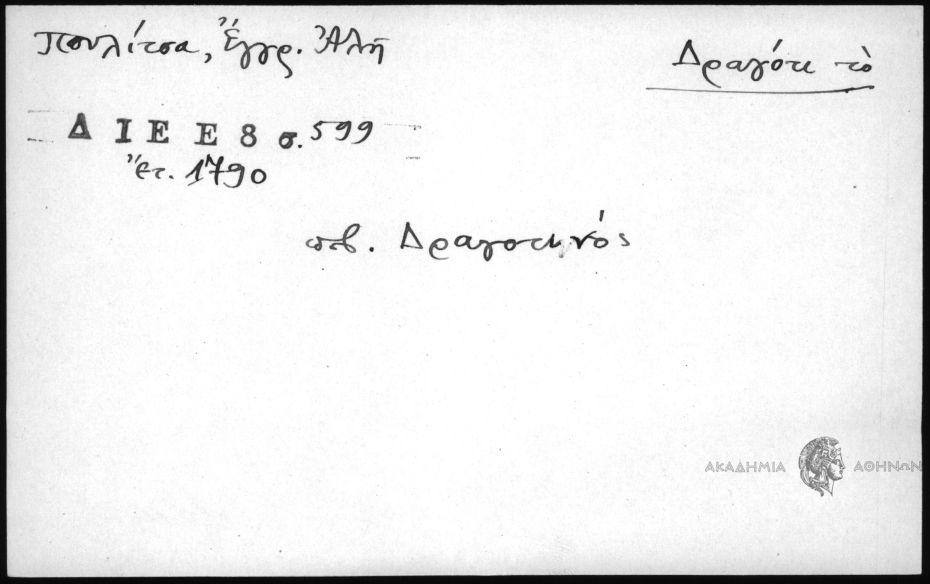 Πουλίτσα, Ἔγγρ. Ἀλῆ
Δραγότι τὸ
Δ Ι Ε Ε 8 σ. 599
ἔτ. 1790
πβ. Δραγοτινός
ΑΚΑΔΗΜΙΑ ΑΘΗΝΩΝ